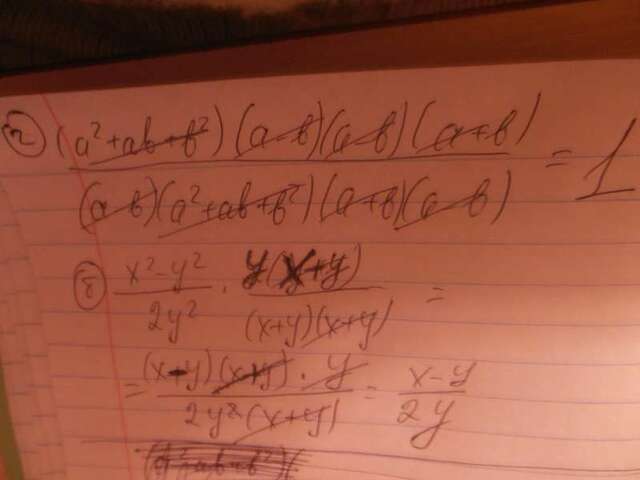 г) (a²+ab+b²)(a-b)(a-b)(a+b)
(a-b)(a²+ab+b²)(a+b)(a-b) = 1
б) x²-y² / 2y² · y(x+y) / (x+y)(x+y) =
= (x-y)(x+y) · y / 2y² (x+y) = x-y / 2y